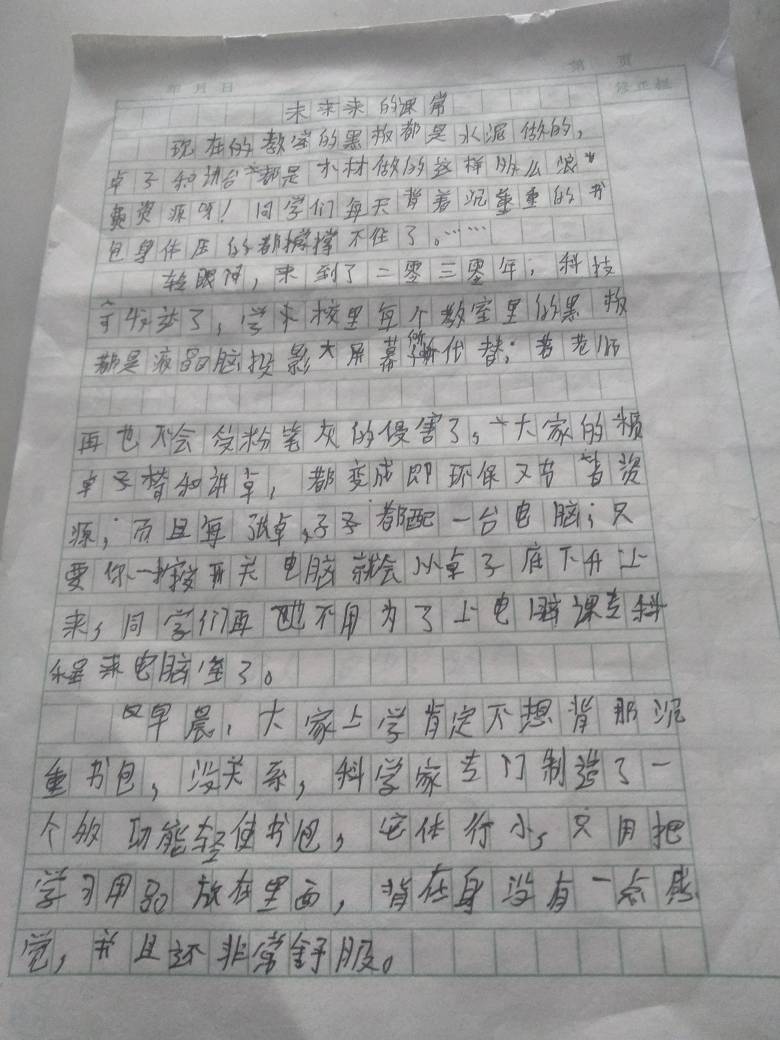 第 页
年 月 日
修正栏
未来来的课常
现在的教室的黑板都是水泥做的，
卓子和讲台都是木材做的这样那么浪
费资源呀！同学们每天背着沉重重的书
包身体压的都撑不住了。……
转眼间，来到了二零三零年，科技
发达了，学校里每个教室里的黑板
都是液晶脑投影大屏幕所代替；老师
再也不会受粉笔灰的侵害了，大家的
卓子和讲卓，都变成即环保又节省资
源，而且每张卓子都配一台电脑；只
要你一按开关电脑就会从卓子底下升上
来，同学们再也不用为了上电脑课专科
程来电脑室了。
早晨，大家上学肯定不想背那沉
重书包，没关系，科学家专门制造了一
个多功能轻便书包，它体行小，只用把
学习用品放在里面，背在身没有一点感
觉，并且还非常舒服。